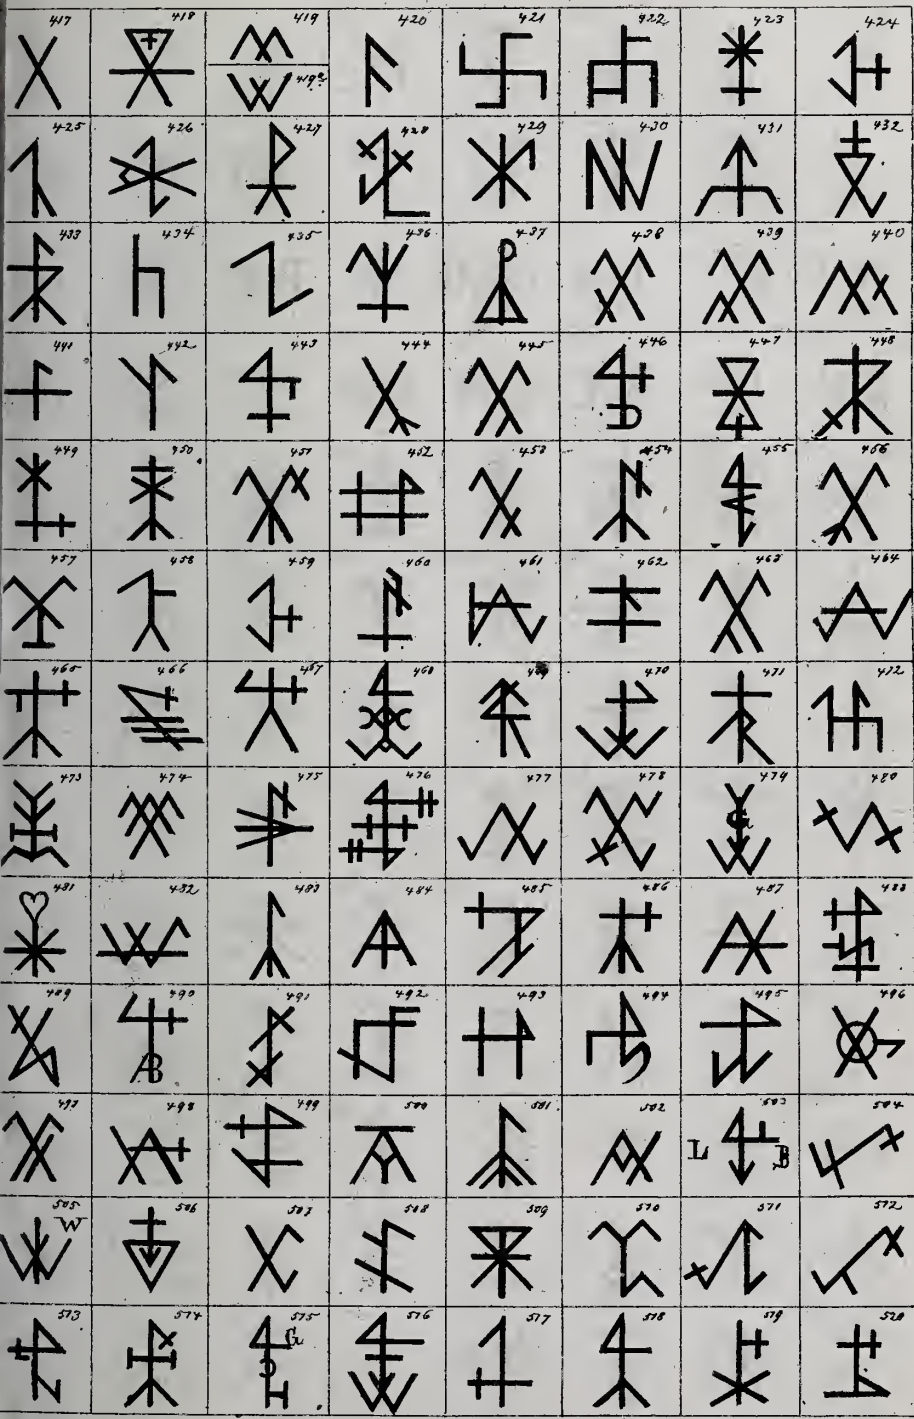 417 418 419 420 421 422 423 424
419a
425 426 427 428 429 430 431 432
433 434 435 436 437 438 439 440
441 442 443 444 445 446 447 448
449 450 451 452 453 454 455 456
457 458 459 460 461 462 463 464
465 466 467 468 469 470 471 472
473 474 475 476 477 478 479 480
G
481 482 483 484 485 486 487 488
489 490 491 492 493 494 495 496
AB
497 498 499 500 501 502 503 504
L B
505 506 507 508 509 510 511 512
W
513 514 515 516 517 518 519 520
G